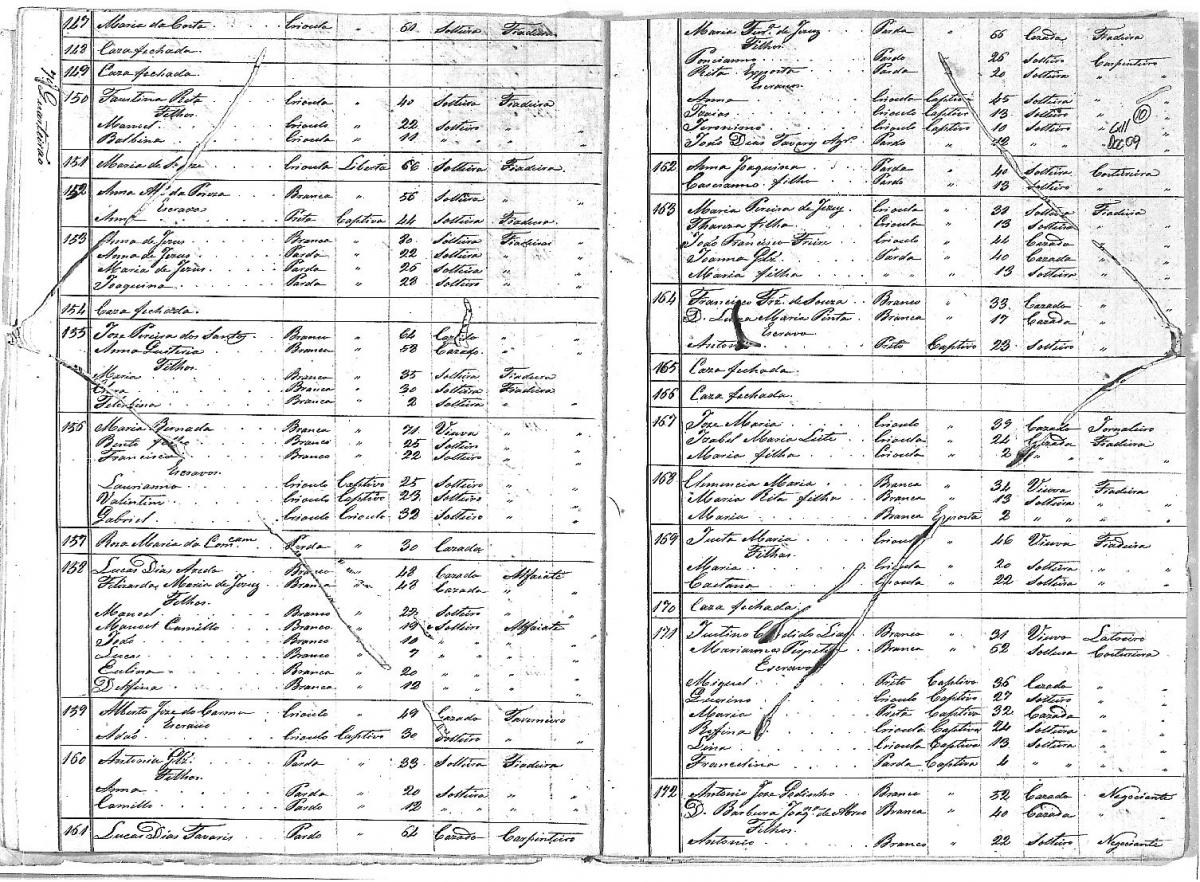 7º Quarteirão
147 Maria da Costa Crioula " 61 Solteira Fiadeira
148 Caza fechada
149 Caza fechada
150 Faustina Rita Crioula " 40 Solteira Fiadeira
Filhos
Manoel Crioulo " 22 Solteiro " "
Balbina Crioula " 11 " " "
151 Maria de Crioula Liberta 66 Solteira Fiadeira
152 Anna da Branca " 56 Solteira "
Escravos
Anna Preta Captiva 44 Solteira Fiadeira
153 Anna de Jezus Branca " 30 Solteira Fiadeiras
Anna de Jezus Parda " 22 Solteira "
Maria de Jezus Parda " 26 Solteira "
Joaquina Parda " 28 Solteira "
154 Caza fechada
155 Joze Pereira dos Santos Branco " 64 Cazado "
Anna Branca " 58 Cazada "
Filhos
Maria Branca " 35 Solteira Fiadeira
Branca " 30 Solteira Fiadeira
Branca " 2 Solteira " "
156 Maria Branca " 71 Viuva " "
Bento filho Branco " 25 Solteiro " "
Francisco Branco " 22 Solteiro " "
Escravos
Laurianno Crioulo Captivo 25 Solteiro " "
Valentim Crioulo Captivo 23 Solteiro " "
Gabriel Crioulo Crioulo 32 Solteiro " "
157 Roza Maria da Comcam Parda " 30 Cazada
158 Lucas Dias Branco " 48 Cazado Alfaiate
Felizarda Maria de Jezuz Branca " 43 Cazada " "
Filhos
Manoel Branco " 22 Solteiro " "
Manoel Camillo Branco " 19 Solteiro Alfaiate
João Branco " 10 " " "
Lucas Branco " 7 " " "
Branca " 20 " " "
Delfina Branca " 12 " " "
159 Alberto Joze do Carmo Crioulo " 49 Cazado
Escravo
Adaõ Crioulo Captivo 30 Solteiro " "
160 Antonia Glz. Parda " 33 Solteira Fiadeira
Filhos
Anna Parda " 20 Solteira " "
Camillo Pardo " 12 " " "
161 Lucas Dias Tavaris Pardo " 64 Cazado Carpinteiro
Maria de Jezuz Parda " 66 Cazada Fiadeira
Filhos
Poncianno Pardo " 26 Solteiro Carpinteiro
Rita Exposta Parda " 20 Solteira " "
Escravos
Anna Crioula Captiva 45 Solteira " "
Crioulo Captivo 13 Solteiro " "
Jeronimo Crioulo Captivo 10 Solteiro " "
João Dias Tavaris Pardo " " "
10
Dec 09
162 Anna Joaquina Parda " 40 Solteira Costureira
Cascianno filho Pardo " 13 Solteiro
163 Maria Pereira de Jezuz Crioula " 38 Solteira Fiadeira
Thareza filha Crioula " 13 Solteira
João Francisco Freire Crioulo " 44 Cazado "
Joanna Glz. Parda " 40 Cazada "
Maria filha " " 13 Solteira "
164 Francisco de Souza Branco " 33 Cazado "
D. Maria Pinta Branca " 17 Cazada "
Escravo
Antonio Preto Captivo 23 Solteiro "
165 Caza fechada
166 Caza fechada
167 Joze Maria Crioulo " 39 Cazado Jornaleiro
Izabel Maria Leite Crioula " 24 Cazada Fiadeira
Maria filha Crioula " 2 " "
168 Clemencia Maria Branca " 34 Viuva Fiadeira
Maria Rita filha Branca " 13 Solteira "
Maria Branca Exposta 2 " " "
169 Justa Maria Crioula " 46 Viuva Fiadeira
Filhos
Maria Crioula " 20 Solteira "
Caetana Crioula " 22 Solteira "
170 Caza fechada
171 Justino Branco " 31 Viuvo Latoeiro
Marianna Branca " 52 Solteira Costureira
Escravos
Miguel Preto Captivo 36 Cazado "
Crioulo Captivo 27 Solteiro "
Maria Preta Captiva 32 Cazada "
Rofina Crioula Captiva 24 Solteira "
Lina Crioula Captiva 13 Solteira "
Francelina Parda Captiva 4 " "
172 Antonio Joze Branco " 52 Cazado Negociante
D. Barbara Branca " 40 Cazada
Filhos
Antonio Branco " 22 Solteiro Negociante